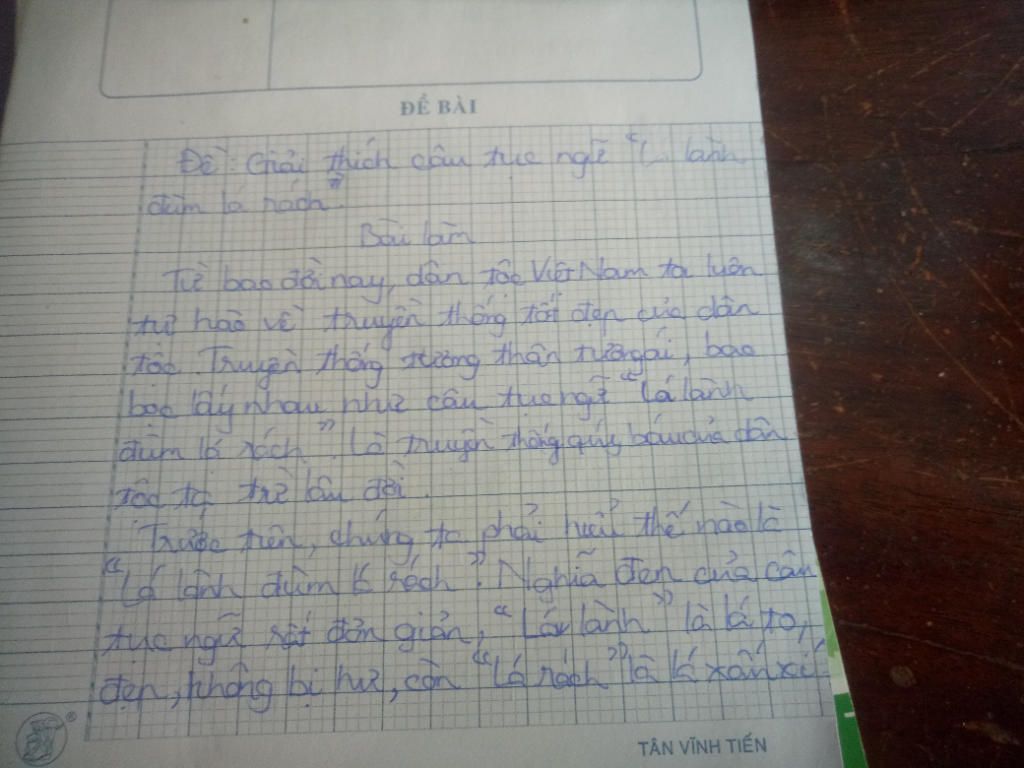 ĐỀ BÀI
Đề: Giải thích câu tục ngữ "L lành
đùm lá rách"
Bài làm
Từ bao đời nay, dân tộc Việt Nam ta luôn
tự hào về truyền thống tốt đẹp của dân
tộc. Truyền thống tương thân tương ái, bao
bọc lấy nhau, như câu tục ngữ "Lá lành
đùm lá rách". Là truyền thống quý báu của dân
tộc ta từ lâu đời.
Trước tiên, chúng ta phải hiểu thế nào là
"Lá lành đùm lá rách". Nghĩa đen của câu
tục ngữ rất đơn giản, "Lá lành" là lá to,
đẹp, không bị hư, còn "Lá rách" là lá xấu xí
TÂN VĨNH TIẾN